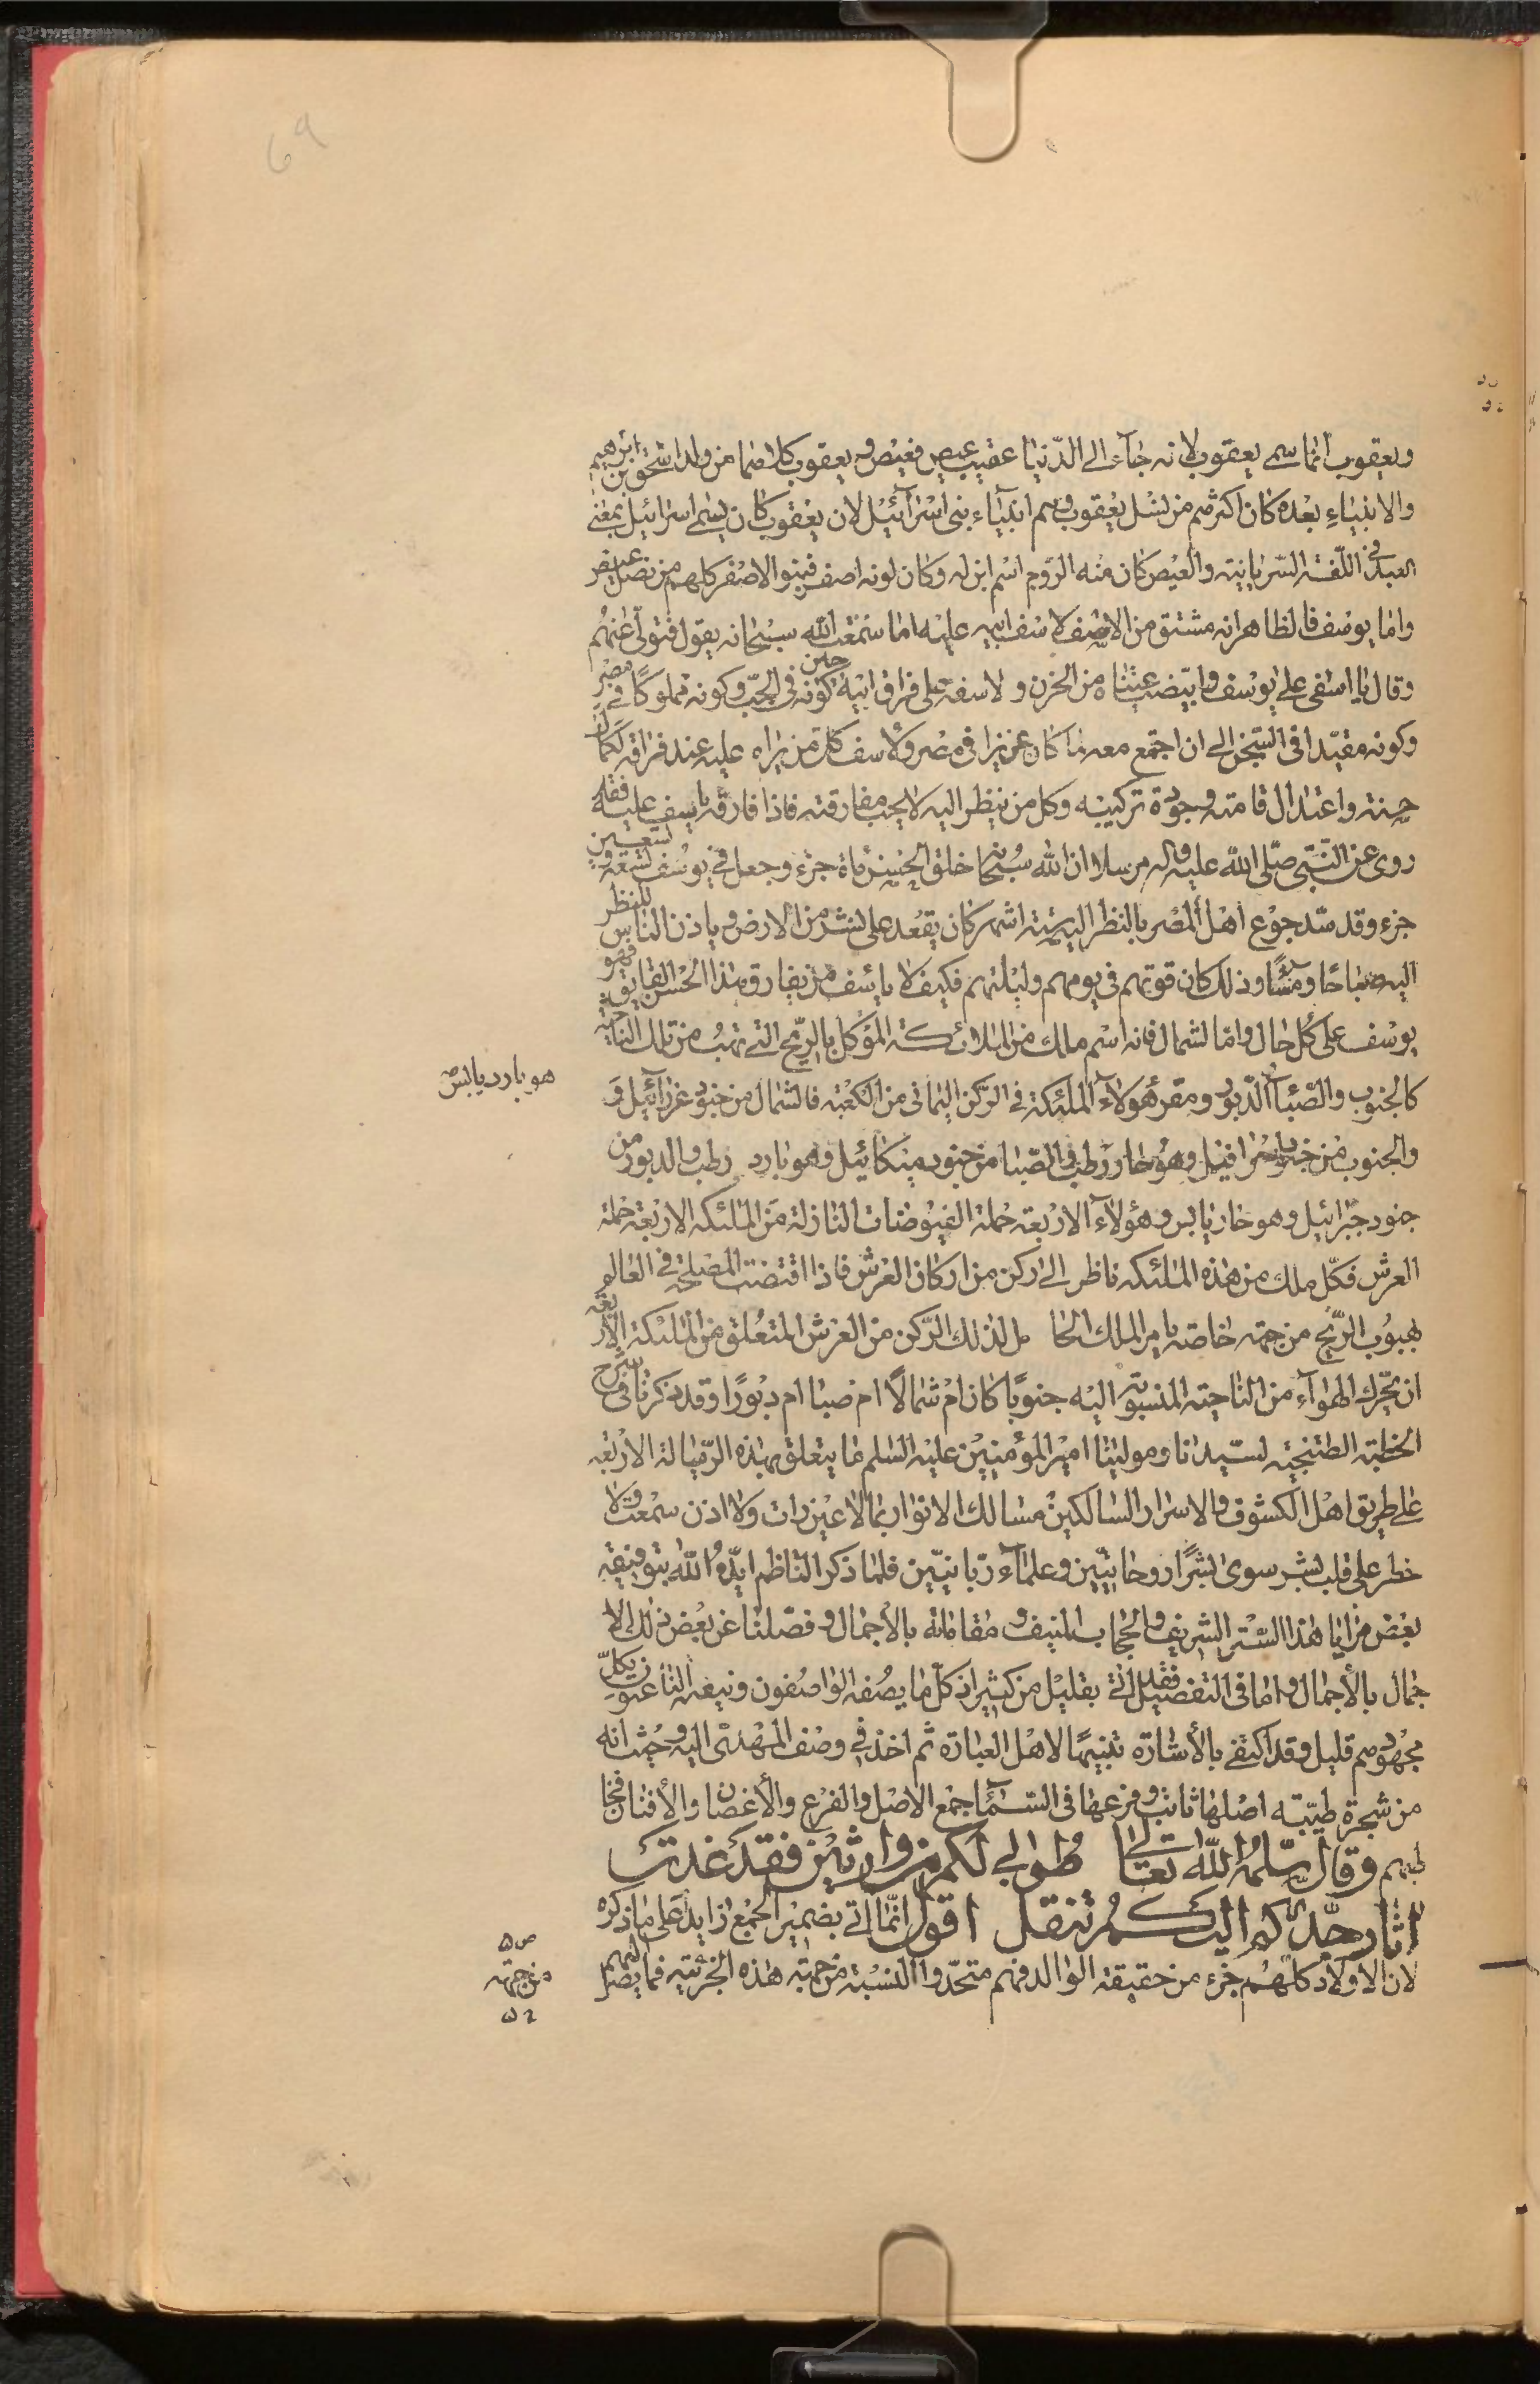 ويعقوب انما سمي يعقوب لانه جاء الى الدّنيا عقيب عيص فعيص ويعقوب كلاهما من ولد اسحق بن ابرهيم
والانبياء بعده كان اكثرهم من نسل يعقوب وهم انبياء بني اسرآئيل لان يعقوب كان يسمى اسرائيل بمعنى
العبد في اللّغة السّريانية والعيص كان منه الروم اسم ابن له وكان لونه اصفر فبنو الاصفر كلهم من نسل عيص
واما يوسف فالظاهر انه مشتق من الاسف لاسف ابيه عليه اما سمعت الله سبحانه يقول فتولى عنهم
وقال يا اسفى على يوسف وابيضت عيناه من الحزن ولاسفه على فراق ابيه حين كونه في الجبّ وكونه مملوكًا في مصر
وكونه مقيّدا في السّجن الى ان اجتمع معه لما كان عزيزا في مصر ولاسف كل من يراه عليه عند فراقه لكمال
حسنه واعتدال قامته وجودة تركيبه وكل من ينظر اليه لا يحب مفارقته فاذا فارقه ياسف عليه فقد
روى عن النّبي صلّى الله عليه وآله مرسلا ان الله سبحانه خلق الحسن مأة جزء وجعل في يوسف تسعة وتسعين
جزء وقد سّد جوع اهل المصر بالنظر اليه ستة اشهر كان يقعد على نشز من الارض وياذن الناس للنظر
اليه صباحًا ومسًاء وذلك كان قوتهم في يومهم وليلتهم فكيف لا يأسف من يفارق هذا الحسن الفايق فهو
يوسف على كل حال واما الشمال فانه اسم ملك من الملائكة المؤكل بالرّيح التي تهبّ من تلك الناحية
كالجنوب والصّبا والدّبور ومقر هولاء الملئكة في الركن اليماني من الكعبة فالشمال من جنود عزرآئيل وَ
هو بارد يابس صح
والجنوب من جنود اسرافيل وهو حار رطب والصّبا من جنود ميكائيل وهو بارد رطب والدبور من
جنود جبرائيل وهو حار يابس وهؤلاء الاربعة حملة الفيوضات النازلة من الملئكة الاربعة حملة
العرش فكلّ ملك من هذه الملئكة ناظر الى ركن من اركان العرش فاذا اقتضت المصلحة في العالم
بهبوب الرّيح من جهة خاصة يامر الملك الحامل لذلك الرّكن من العرش المتعلق من الملئكة الاربعة
ان يحّرك الهوآء من الناحية المنسوبة اليه جنوبًا كان ام شمالًا ام صبا ام دبورًا وقد ذكرنا في شرح
الخطبة الطتنجية لسيدنا ومولينا امير المؤمنين عليه السّلم ما يتعلق بهذه الرّياح الاربعة
على طريق اهل الكشوف والاسرار السالكين مسالك الانوار بما لا عين رات ولا اذن سمعت ولا
خطر على قلب بشر سوى بشرًا روحانيّين وعلماء ربّانيّين فلما ذكر الناظم ايدّه الله بتوفيقه
بعض مزايا هذا السّتر الشريف والحجاب المنيف ومقاماته بالأجمال وفصّلنا عن بعض ذلك الا
جمال بالأجمال واما في التفصيل فقد اتى بقليل من كثير اذ كل ما يصفه الواصفون وينعته الناعتون بكل
مجهودهم قليل وقد اكتفى بالأشارة تنبيهًا لاهل العبارة ثم اخذ في وصف المهدى اليه وحيث انه
من شجرة طيّبة اصلها ثابت وفرعها في السّماء جمع الاصل والفرع والأغصان والأفنان فخا
طبهم وقال سلّمه الله تعالى طوبى لكم من وارثين فقد غدت
اثار جدّكم اليكم تنقل اقول انّما اتى بضمير الجمع زايد على ما ذكره
لان الاولاد كلهم جزء من حقيقة الوالد فهم متحدوا النسبة من جهة هذه الجزئية فما يصل اليهم
من جهة